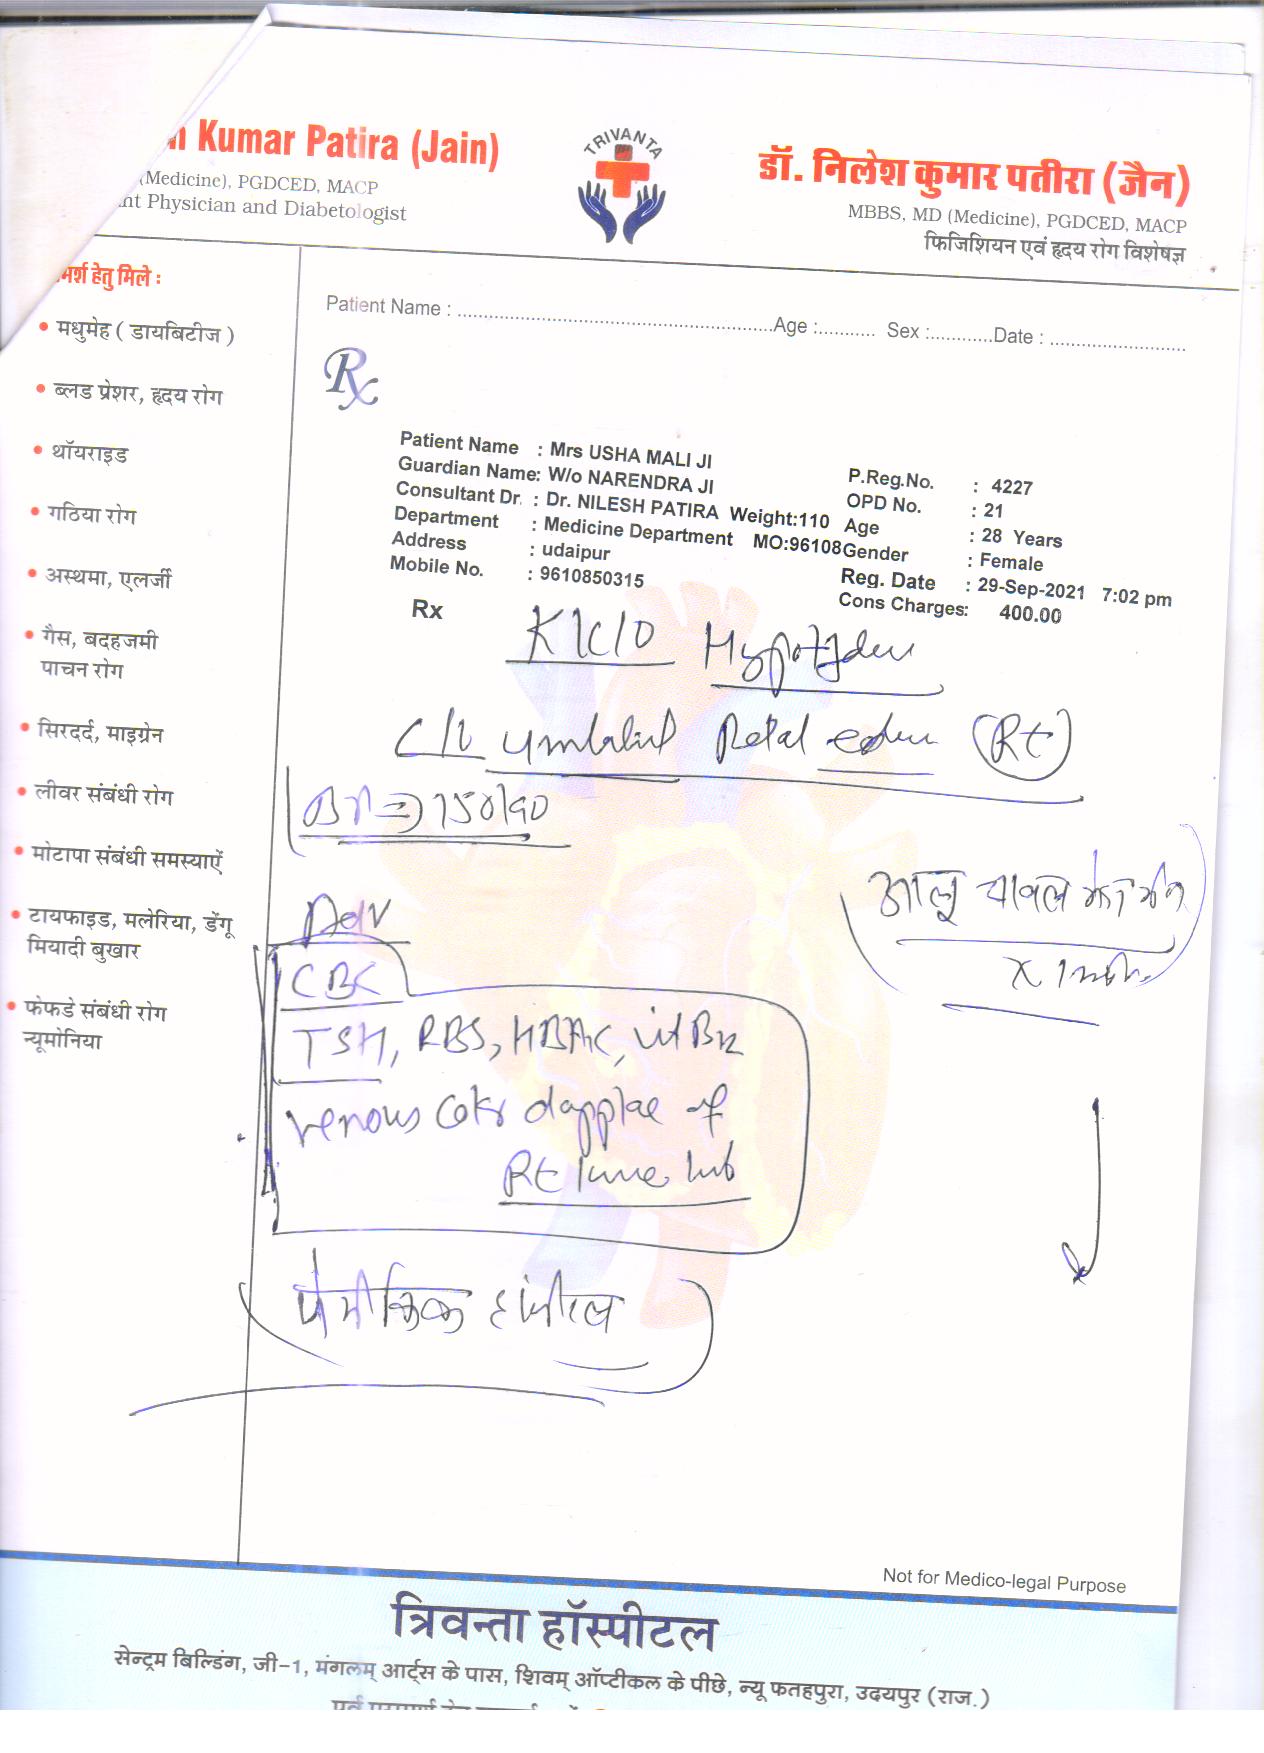 Kumar Patira (Jain)
(Medicine), PGDCED, MACP
Physician and Diabetologist
TRIVANTA
डॉ. निलेश कुमार पतीरा (जैन)
MBBS, MD (Medicine), PGDCED, MACP
फिजिशियन एवं हृदय रोग विशेषज्ञ
हेतु मिले :
• मधुमेह ( डायबिटीज )
• ब्लड प्रेशर, हृदय रोग
• थॉयराइड
• गठिया रोग
• अस्थमा, एलर्जी
• गैस, बदहजमी
पाचन रोग
• सिरदर्द, माइग्रेन
• लीवर संबंधी रोग
• मोटापा संबंधी समस्याऐं
• टायफाइड, मलेरिया, डेंगू
मियादी बुखार
• फेफडे संबंधी रोग
न्यूमोनिया
Patient Name : ........ Age :........... Sex :............Date : ........................
Rx
Patient Name : Mrs USHA MALI JI
Guardian Name: W/o NARENDRA JI
Consultant Dr. : Dr. NILESH PATIRA Weight:110
Department : Medicine Department MO:96108
Address : udaipur
Mobile No. : 9610850315
P.Reg.No. : 4227
OPD No. : 21
Age : 28 Years
Gender : Female
Reg. Date : 29-Sep-2021 7:02 pm
Cons Charges: 400.00
Rx
K/C/O
Pedal edema (Rt)
BP => 150/90
आलू चावल
Adv
CBC
TSH, RBS, HBA1C, vit B12
venous of
Rt
Not for Medico-legal Purpose
त्रिवन्ता हॉस्पीटल
सेन्ट्रम बिल्डिंग, जी-1, मंगलम् आर्ट्स के पास, शिवम् ऑप्टीकल के पीछे, न्यू फतहपुरा, उदयपुर (राज.)